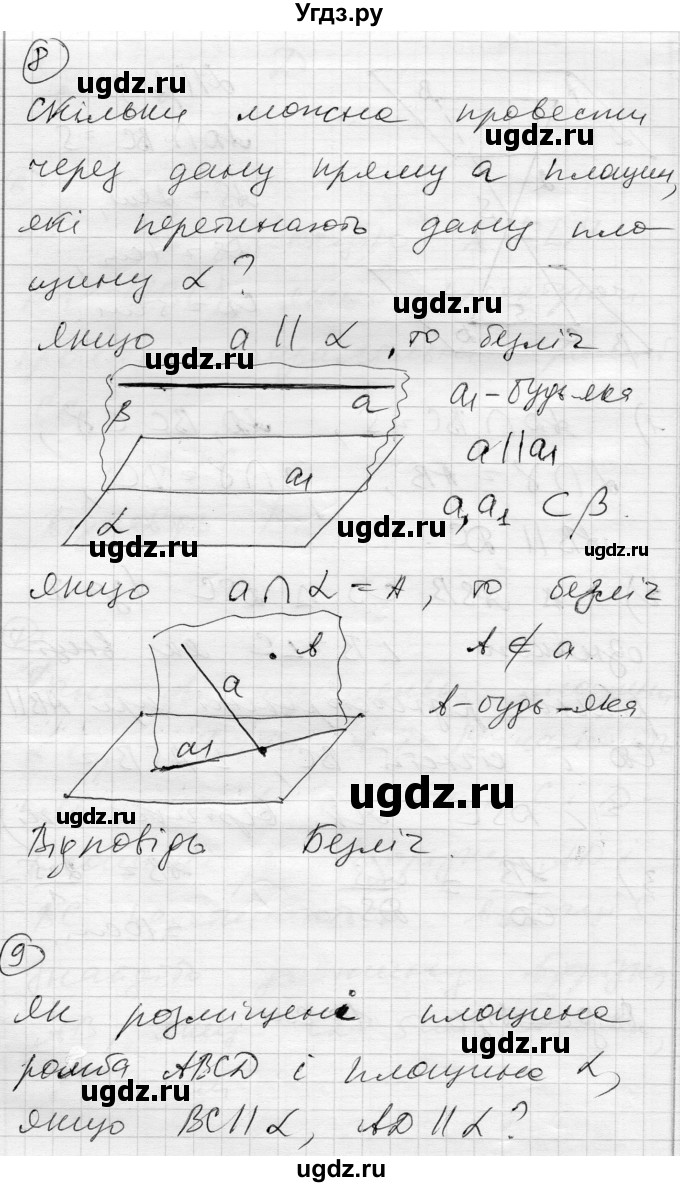 Угдз.ру
8
ugdz.ru
Скільки можна провести
ugdz.ru
через дану пряму a площин,
які перетинають дану пло-
щину α?
ugdz.ru
якщо a || α, то безліч
ugdz.ru
β a a₁ - будь-яка
a₁ a || a₁
α a, a₁ ⊂ β.
ugdz.ru ugdz.ru ugdz.ru
якщо a ∩ α = A, то безліч
в A ⊄ a.
a в - будь-яка
a₁
ugdz.ru
ugdz.ru
Відповідь Безліч.
9
Як розміщені площина
ugdz.ru
ромба ABCD і площина α,
ugdz.ru
якщо BC || α, AD || α?
ugdz.ru